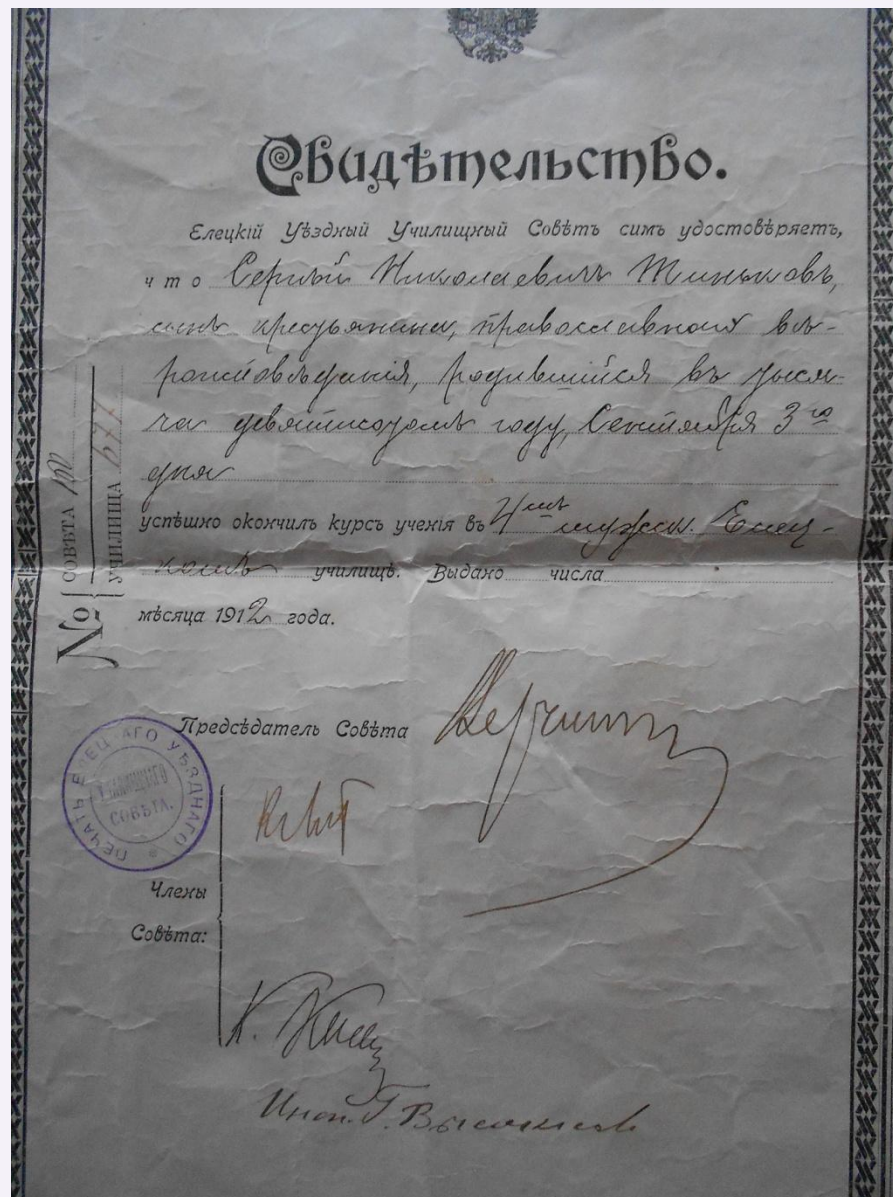 Свидѣтельство.
Елецкій Уѣздный Училищный Совѣтъ симъ удостовѣряетъ,
что Сергѣй Николаевичъ Жиньковъ,
сынъ крестьянина, православнаго вѣ-
роисповѣданія, родившійся въ тыся-
ча девятисотомъ году, Сентября 3го
дня
успѣшно окончилъ курсъ ученія въ 4мъ мужск. Елец-
комъ училищѣ. Выдано числа
мѣсяца 1912 года.
№ СОВѢТА
УЧИЛИЩА 677
Предсѣдатель Совѣта
ПЕЧАТЬ ЕЛЕЦКАГО УѢЗДНАГО
УЧИЛИЩНАГО
СОВѢТА.
Члены
Совѣта:
К.
Инсп. Г.